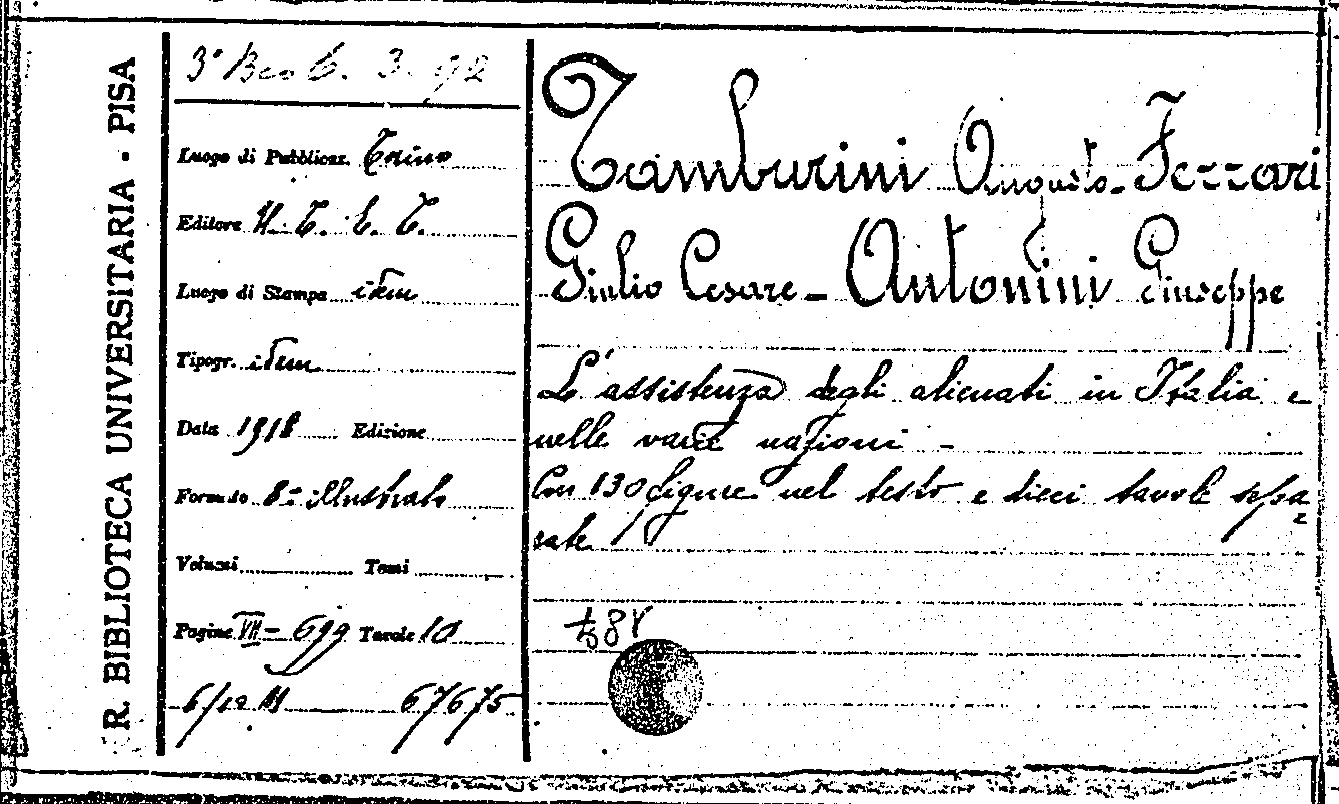 R. BIBLIOTECA UNIVERSITARIA - PISA
3. 92
Luogo di Pubblicaz. Torino
Editore U. T. E. T.
Luogo di Stampa idem
Tipogr. idem
Data 1918 Edizione
Formato 8º illustrato
Volumi Tomi
Pagine VII - 699 Tavole 10
67675
Tamburini Augusto - Ferrari
Giulio Cesare - Antonini Giuseppe
L'assistenza degli alienati in Italia e
nelle varie nazioni -
Con 130 figure nel testo e dieci tavole sepa=
rate